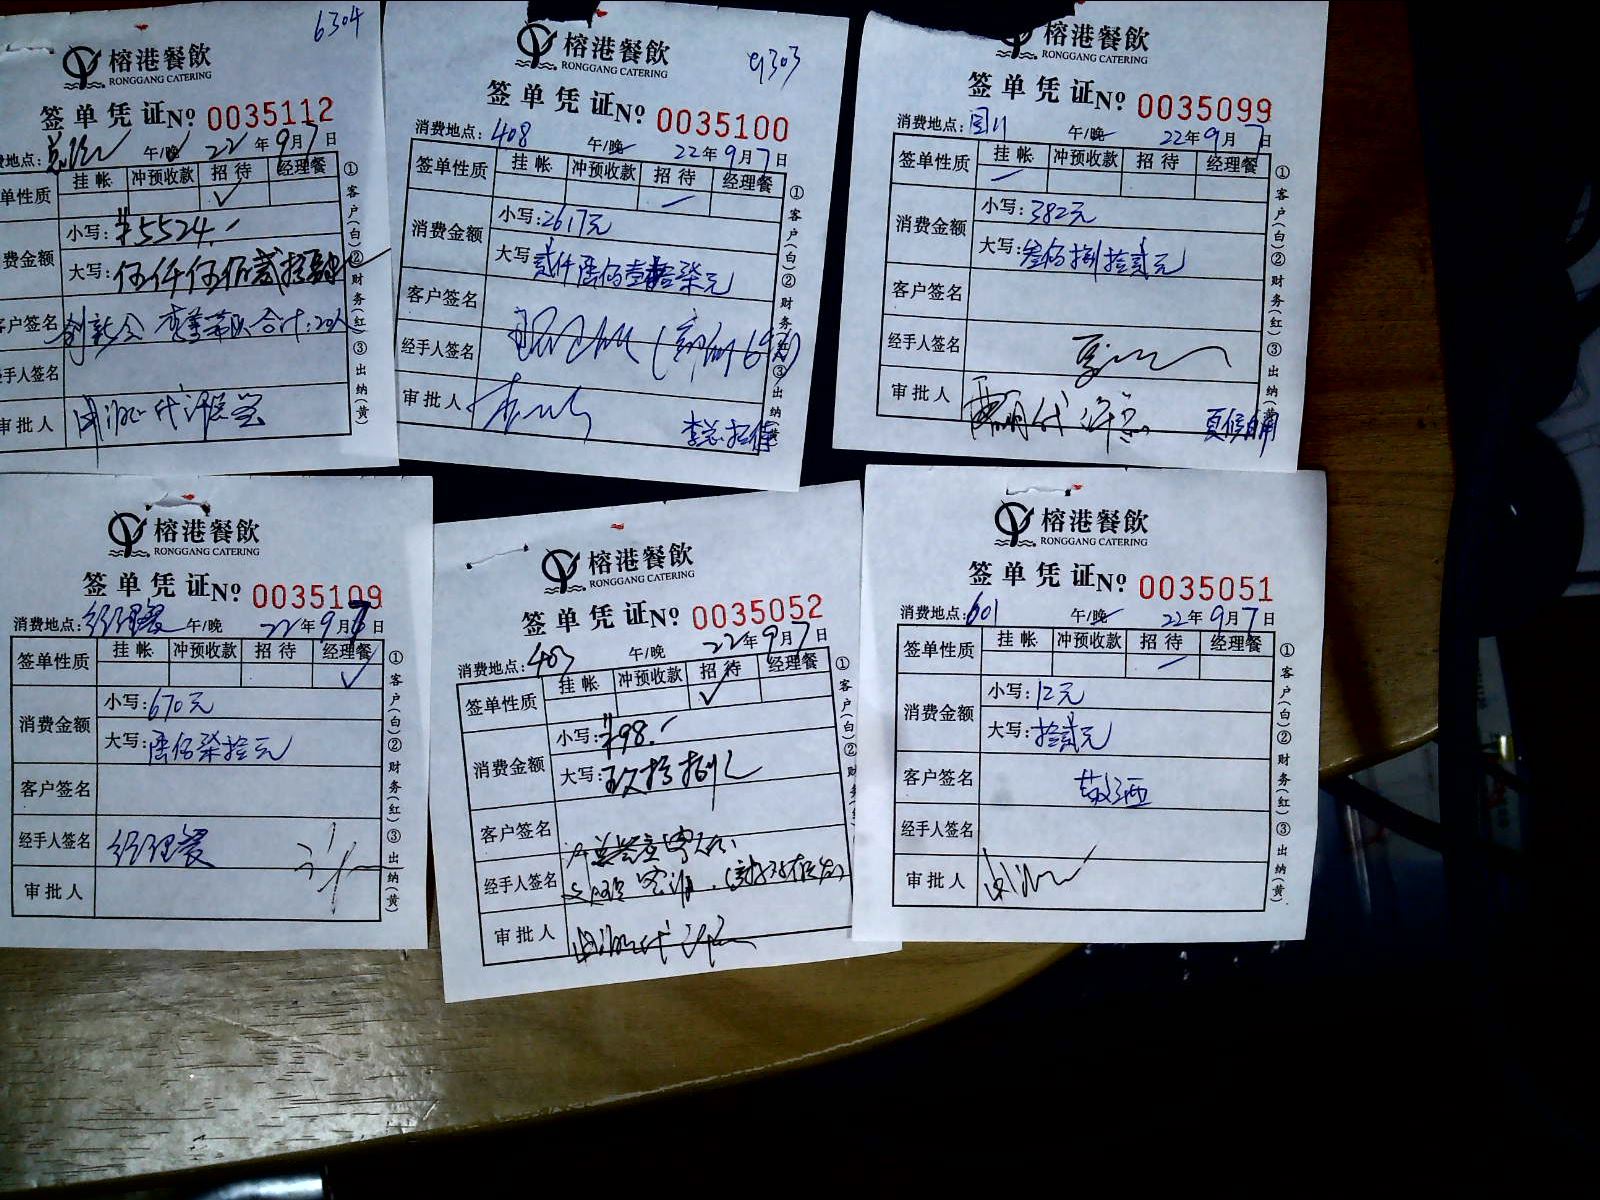 6304
榕港餐飲
RONGGANG CATERING
签单凭证 № 0035112
费地点: 午/晚 22年9月7日
单性质 挂帐 冲预收款 招待 经理餐
✓
费金额 小写: ¥5524.-
大写: 伍仟伍佰贰拾肆
客户签名 合计:20人
手人签名
审批人
①客户(白)②财务(红)③出纳(黄)
9303
榕港餐飲
RONGGANG CATERING
签单凭证 № 0035100
消费地点: 408 午/晚 22年9月7日
签单性质 挂帐 冲预收款 招待 经理餐
消费金额 小写: 2617元
大写: 贰仟陆佰壹拾柒元
客户签名
经手人签名
审批人
李总招待
①客户(白)②财务(红)③出纳(黄)
榕港餐飲
RONGGANG CATERING
签单凭证 № 0035099
消费地点: 午/晚 22年9月7日
签单性质 挂帐 冲预收款 招待 经理餐
消费金额 小写: 382元
大写: 叁佰捌拾贰元
客户签名
经手人签名
审批人
①客户(白)②财务(红)③出纳(黄)
榕港餐飲
RONGGANG CATERING
签单凭证 № 0035109
消费地点: 经理餐 午/晚 22年9月7日
签单性质 挂帐 冲预收款 招待 经理餐
✓
消费金额 小写: 670元
大写: 陆佰柒拾元
客户签名
经手人签名 经理餐
审批人
①客户(白)②财务(红)③出纳(黄)
榕港餐飲
RONGGANG CATERING
签单凭证 № 0035052
消费地点: 403 午/晚 22年9月7日
签单性质 挂帐 冲预收款 招待 经理餐
✓
消费金额 小写: ¥98.-
大写: 玖拾捌元
客户签名
经手人签名
审批人
①客户(白)②财务(红)③出纳(黄)
榕港餐飲
RONGGANG CATERING
签单凭证 № 0035051
消费地点: 601 午/晚 22年9月7日
签单性质 挂帐 冲预收款 招待 经理餐
消费金额 小写: 12元
大写: 拾贰元
客户签名 敬酒
经手人签名
审批人
①客户(白)②财务(红)③出纳(黄)